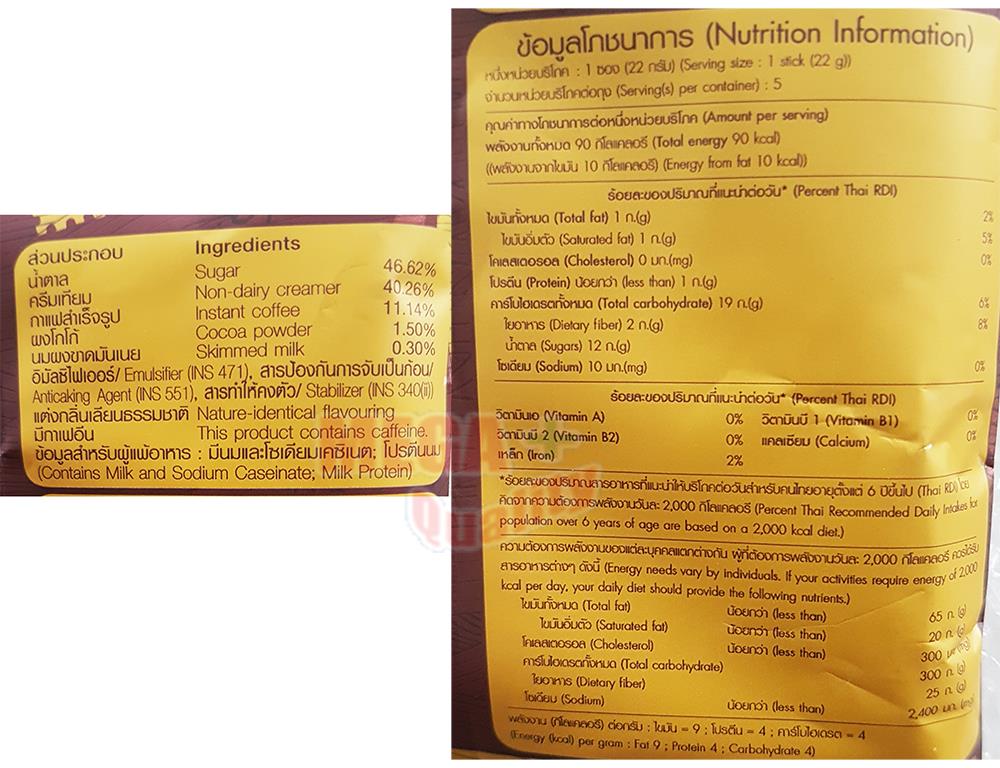 ส่วนประกอบ Ingredients
น้ำตาล Sugar 46.62%
ครีมเทียม Non-dairy creamer 40.26%
กาแฟสำเร็จรูป Instant coffee 11.14%
ผงโกโก้ Cocoa powder 1.50%
นมผงขาดมันเนย Skimmed milk 0.30%
อิมัลซิไฟเออร์/ Emulsifier (INS 471), สารป้องกันการจับเป็นก้อน/
Anticaking Agent (INS 551), สารทำให้คงตัว/ Stabilizer (INS 340(ii))
แต่งกลิ่นเลียนธรรมชาติ Nature-identical flavouring
มีกาเฟอีน This product contains caffeine.
ข้อมูลสำหรับผู้แพ้อาหาร : มีนมและโซเดียมเคซิเนต; โปรตีนนม
(Contains Milk and Sodium Caseinate; Milk Protein)
ข้อมูลโภชนาการ (Nutrition Information)
หนึ่งหน่วยบริโภค : 1 ซอง (22 กรัม) (Serving size : 1 stick (22 g))
จำนวนหน่วยบริโภคต่อถุง (Serving(s) per container) : 5
คุณค่าทางโภชนาการต่อหนึ่งหน่วยบริโภค (Amount per serving)
พลังงานทั้งหมด 90 กิโลแคลอรี (Total energy 90 kcal)
((พลังงานจากไขมัน 10 กิโลแคลอรี) (Energy from fat 10 kcal))
ร้อยละของปริมาณที่แนะนำต่อวัน* (Percent Thai RDI)
ไขมันทั้งหมด (Total fat) 1 ก.(g) 2%
ไขมันอิ่มตัว (Saturated fat) 1 ก.(g) 5%
โคเลสเตอรอล (Cholesterol) 0 มก.(mg) 0%
โปรตีน (Protein) น้อยกว่า (less than) 1 ก.(g)
คาร์โบไฮเดรตทั้งหมด (Total carbohydrate) 19 ก.(g) 6%
ใยอาหาร (Dietary fiber) 2 ก.(g) 8%
น้ำตาล (Sugars) 12 ก.(g)
โซเดียม (Sodium) 10 มก.(mg) 0%
ร้อยละของปริมาณที่แนะนำต่อวัน* (Percent Thai RDI)
วิตามินเอ (Vitamin A) 0% วิตามินบี 1 (Vitamin B1) 0%
วิตามินบี 2 (Vitamin B2) 0% แคลเซียม (Calcium) 0%
เหล็ก (Iron) 2%
*ร้อยละของปริมาณสารอาหารที่แนะนำให้บริโภคต่อวันสำหรับคนไทยอายุตั้งแต่ 6 ปีขึ้นไป (Thai RDI) โดย
คิดจากความต้องการพลังงานวันละ 2,000 กิโลแคลอรี (Percent Thai Recommended Daily Intakes for
population over 6 years of age are based on a 2,000 kcal diet.)
ความต้องการพลังงานของแต่ละบุคคลแตกต่างกัน ผู้ที่ต้องการพลังงานวันละ 2,000 กิโลแคลอรี ควรได้รับ
สารอาหารต่างๆ ดังนี้ (Energy needs vary by individuals. If your activities require energy of 2,000
kcal per day, your daily diet should provide the following nutrients.)
ไขมันทั้งหมด (Total fat) น้อยกว่า (less than) 65 ก. (g)
ไขมันอิ่มตัว (Saturated fat) น้อยกว่า (less than) 20 ก. (g)
โคเลสเตอรอล (Cholesterol) น้อยกว่า (less than) 300 มก. (mg)
คาร์โบไฮเดรตทั้งหมด (Total carbohydrate) 300 ก. (g)
ใยอาหาร (Dietary fiber) 25 ก. (g)
โซเดียม (Sodium) น้อยกว่า (less than) 2,400 มก. (mg)
พลังงาน (กิโลแคลอรี) ต่อกรัม : ไขมัน = 9 ; โปรตีน = 4 ; คาร์โบไฮเดรต = 4
(Energy (kcal) per gram : Fat 9 ; Protein 4 ; Carbohydrate 4)